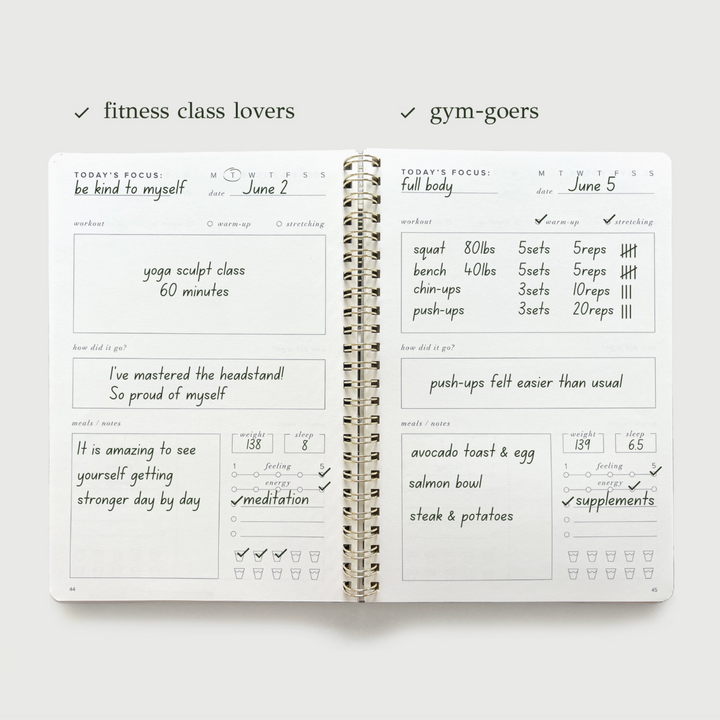 ✓ fitness class lovers
✓ gym-goers
TODAY'S FOCUS: M T W T F S S
be kind to myself date June 2
workout warm-up stretching
yoga sculpt class
60 minutes
how did it go?
I've mastered the headstand!
So proud of myself
meals / notes
It is amazing to see
yourself getting
stronger day by day
weight sleep
138 8
1 feeling 5
energy
meditation
44
TODAY'S FOCUS: M T W T F S S
full body date June 5
workout warm-up stretching
squat 80lbs 5sets 5reps
bench 40lbs 5sets 5reps
chin-ups 3sets 10reps
push-ups 3sets 20reps
how did it go?
push-ups felt easier than usual
meals / notes
avocado toast & egg
salmon bowl
steak & potatoes
weight sleep
139 6.5
1 feeling 5
energy
supplements
45